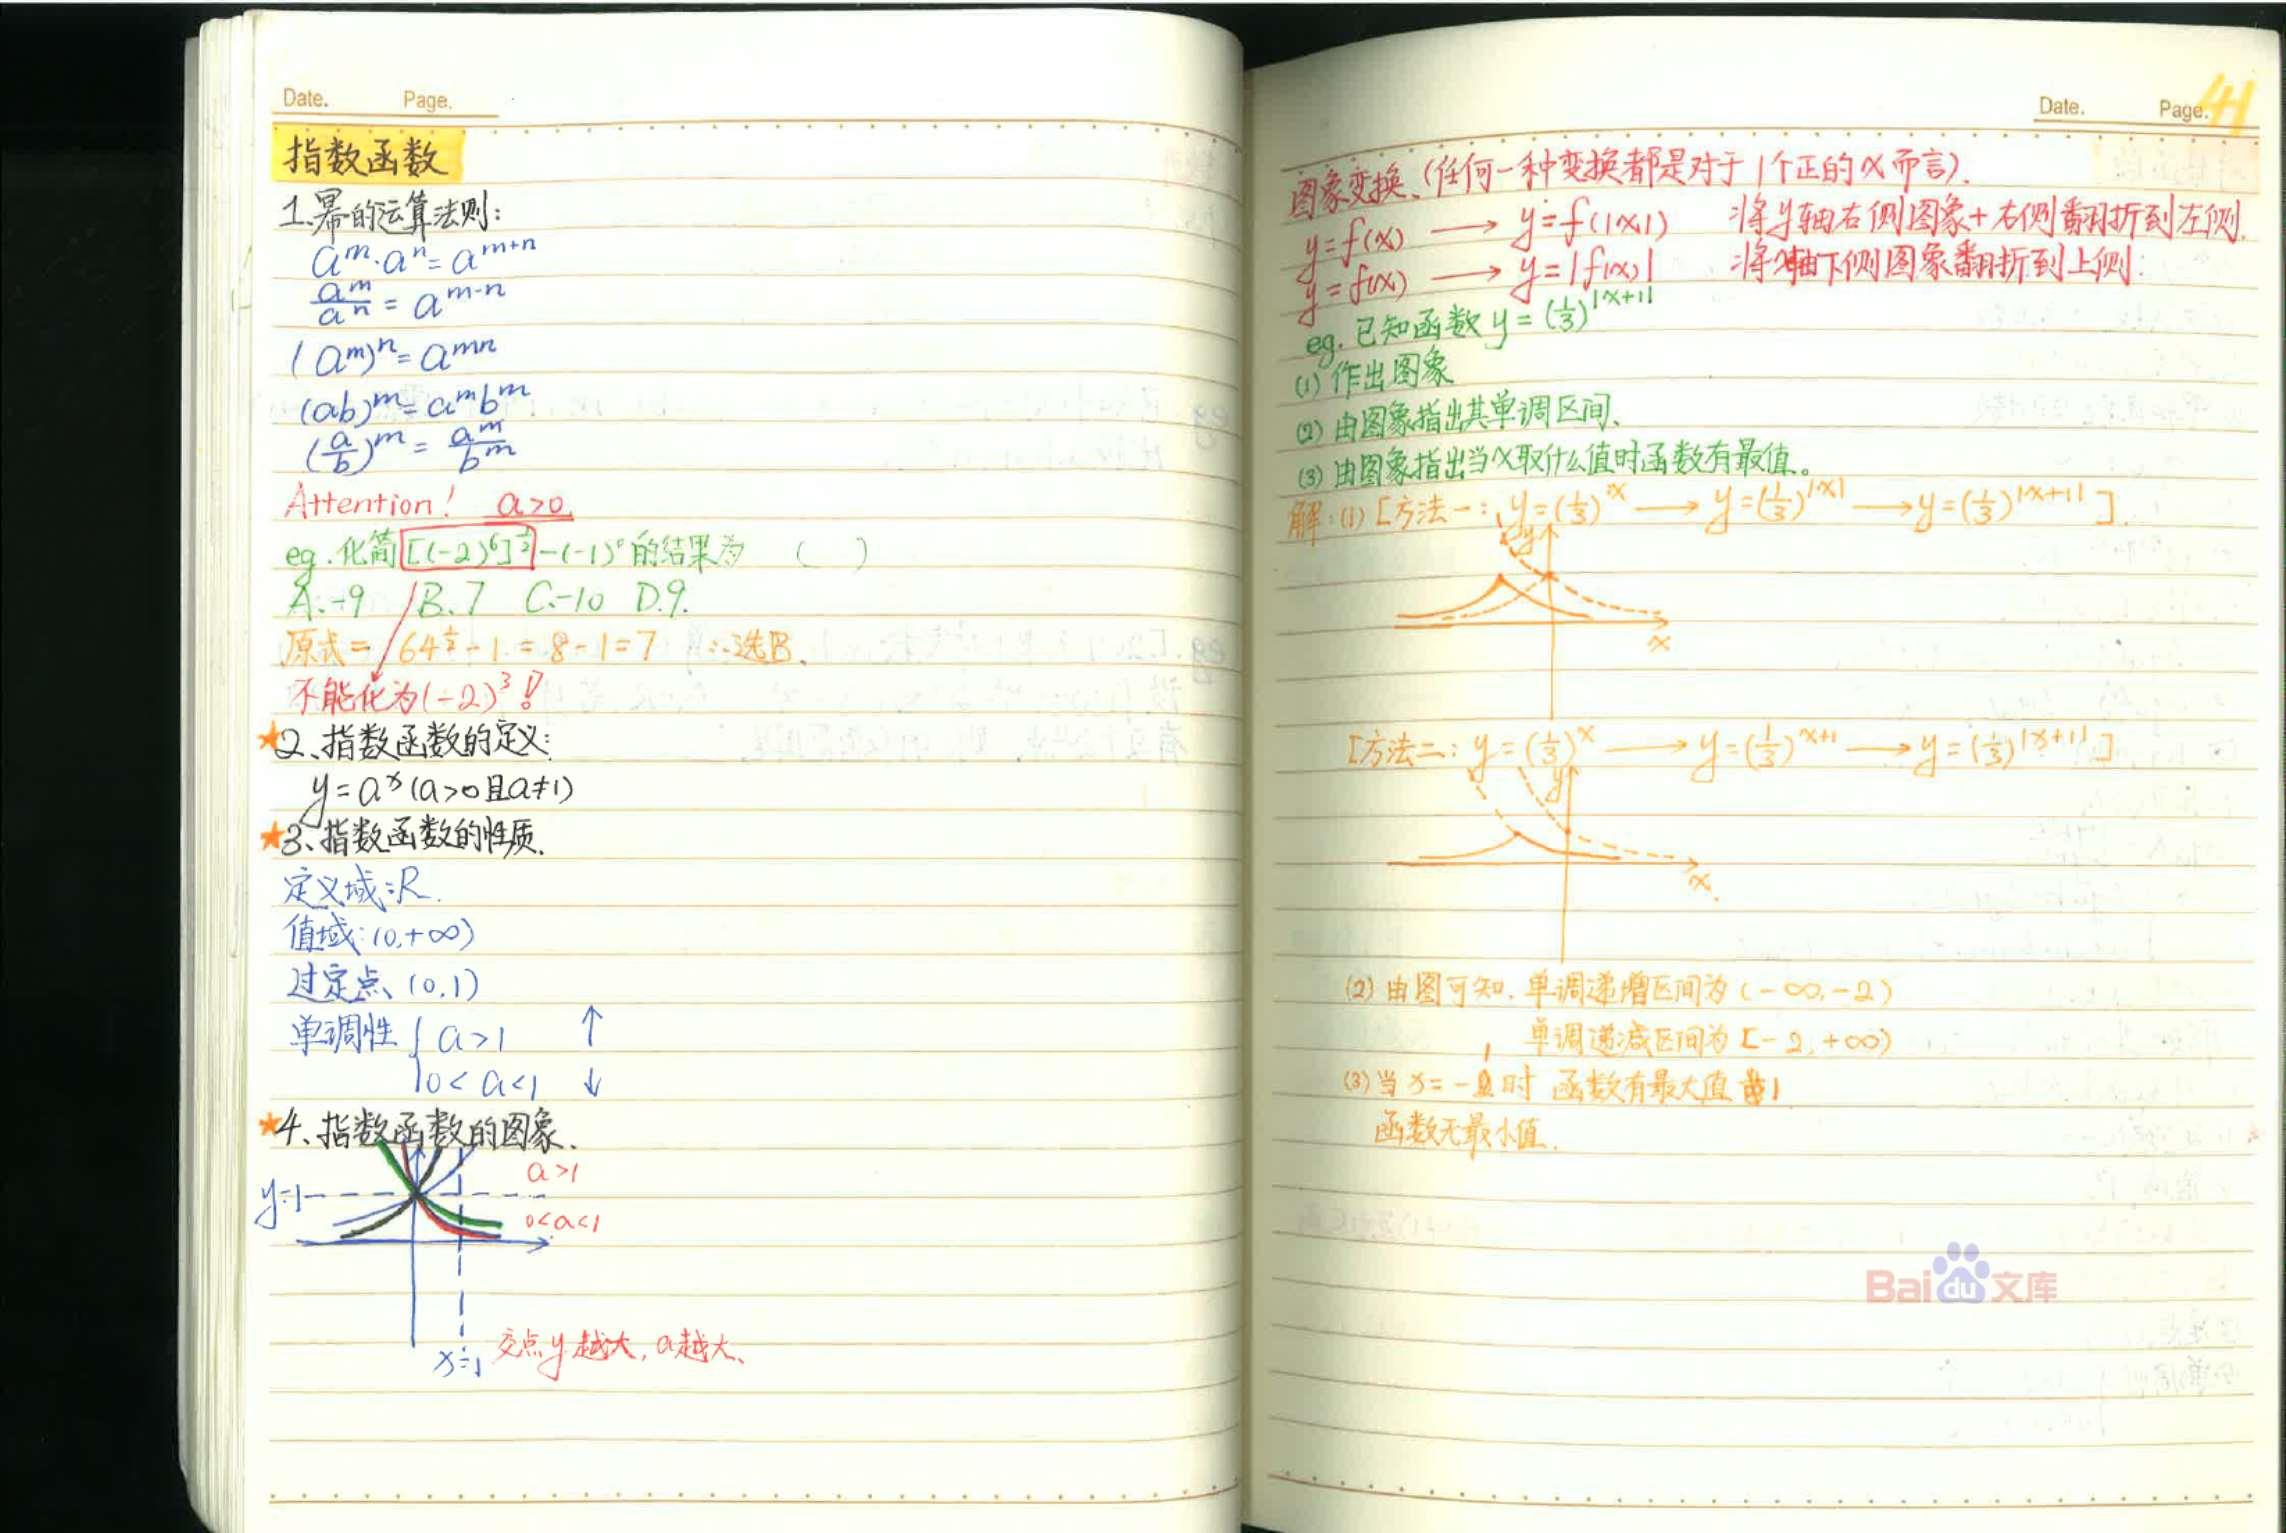 Date. Page.
指数函数
1、幂的运算法则:
aᵐ·aⁿ=aᵐ⁺ⁿ
aᵐ/aⁿ=aᵐ⁻ⁿ
(aᵐ)ⁿ=aᵐⁿ
(ab)ᵐ=aᵐbᵐ
(a/b)ᵐ=aᵐ/bᵐ
Attention! a>0.
eg.化简[(-2)⁶]^½-(-1)⁰的结果为 ( )
A.-9 B.7 C.-10 D.9.
原式=64^½-1=8-1=7 ∴选B.
不能化为(-2)³!
★2、指数函数的定义:
y=aˣ(a>0且a≠1)
★3、指数函数的性质.
定义域:R.
值域:(0,+∞)
过定点(0,1)
单调性{a>1 ↑
0<a<1 ↓
★4、指数函数的图象.
a>1
y=1
0<a<1
x=1 交点y越大,a越大、
Date. Page. 41
图象变换、(任何一种变换都是对于1个正的x而言).
y=f(x) → y=f(|x|) 将y轴右侧图象+右侧翻折到左侧.
y=f(x) → y=|f(x)| 将x轴下侧图象翻折到上侧.
eg.已知函数y=(1/3)^|x+1|
(1)作出图象
(2)由图象指出其单调区间、
(3)由图象指出当x取什么值时函数有最值。
解:(1)[方法一:y=(1/3)^x → y=(1/3)^|x| → y=(1/3)^|x+1|].
y
x
[方法二:y=(1/3)^x → y=(1/3)^x+1 → y=(1/3)^|x+1|]
y
x
(2)由图可知.单调递增区间为(-∞,-2)
单调递减区间为[-2,+∞)
(3)当x=-1时 函数有最大值1
函数无最小值.
Baidu文库